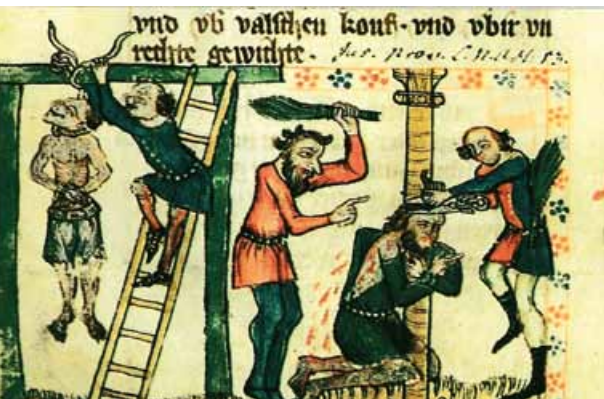 vnd vb valschen kouf · vnd vbir vn
rechte gewichte ·